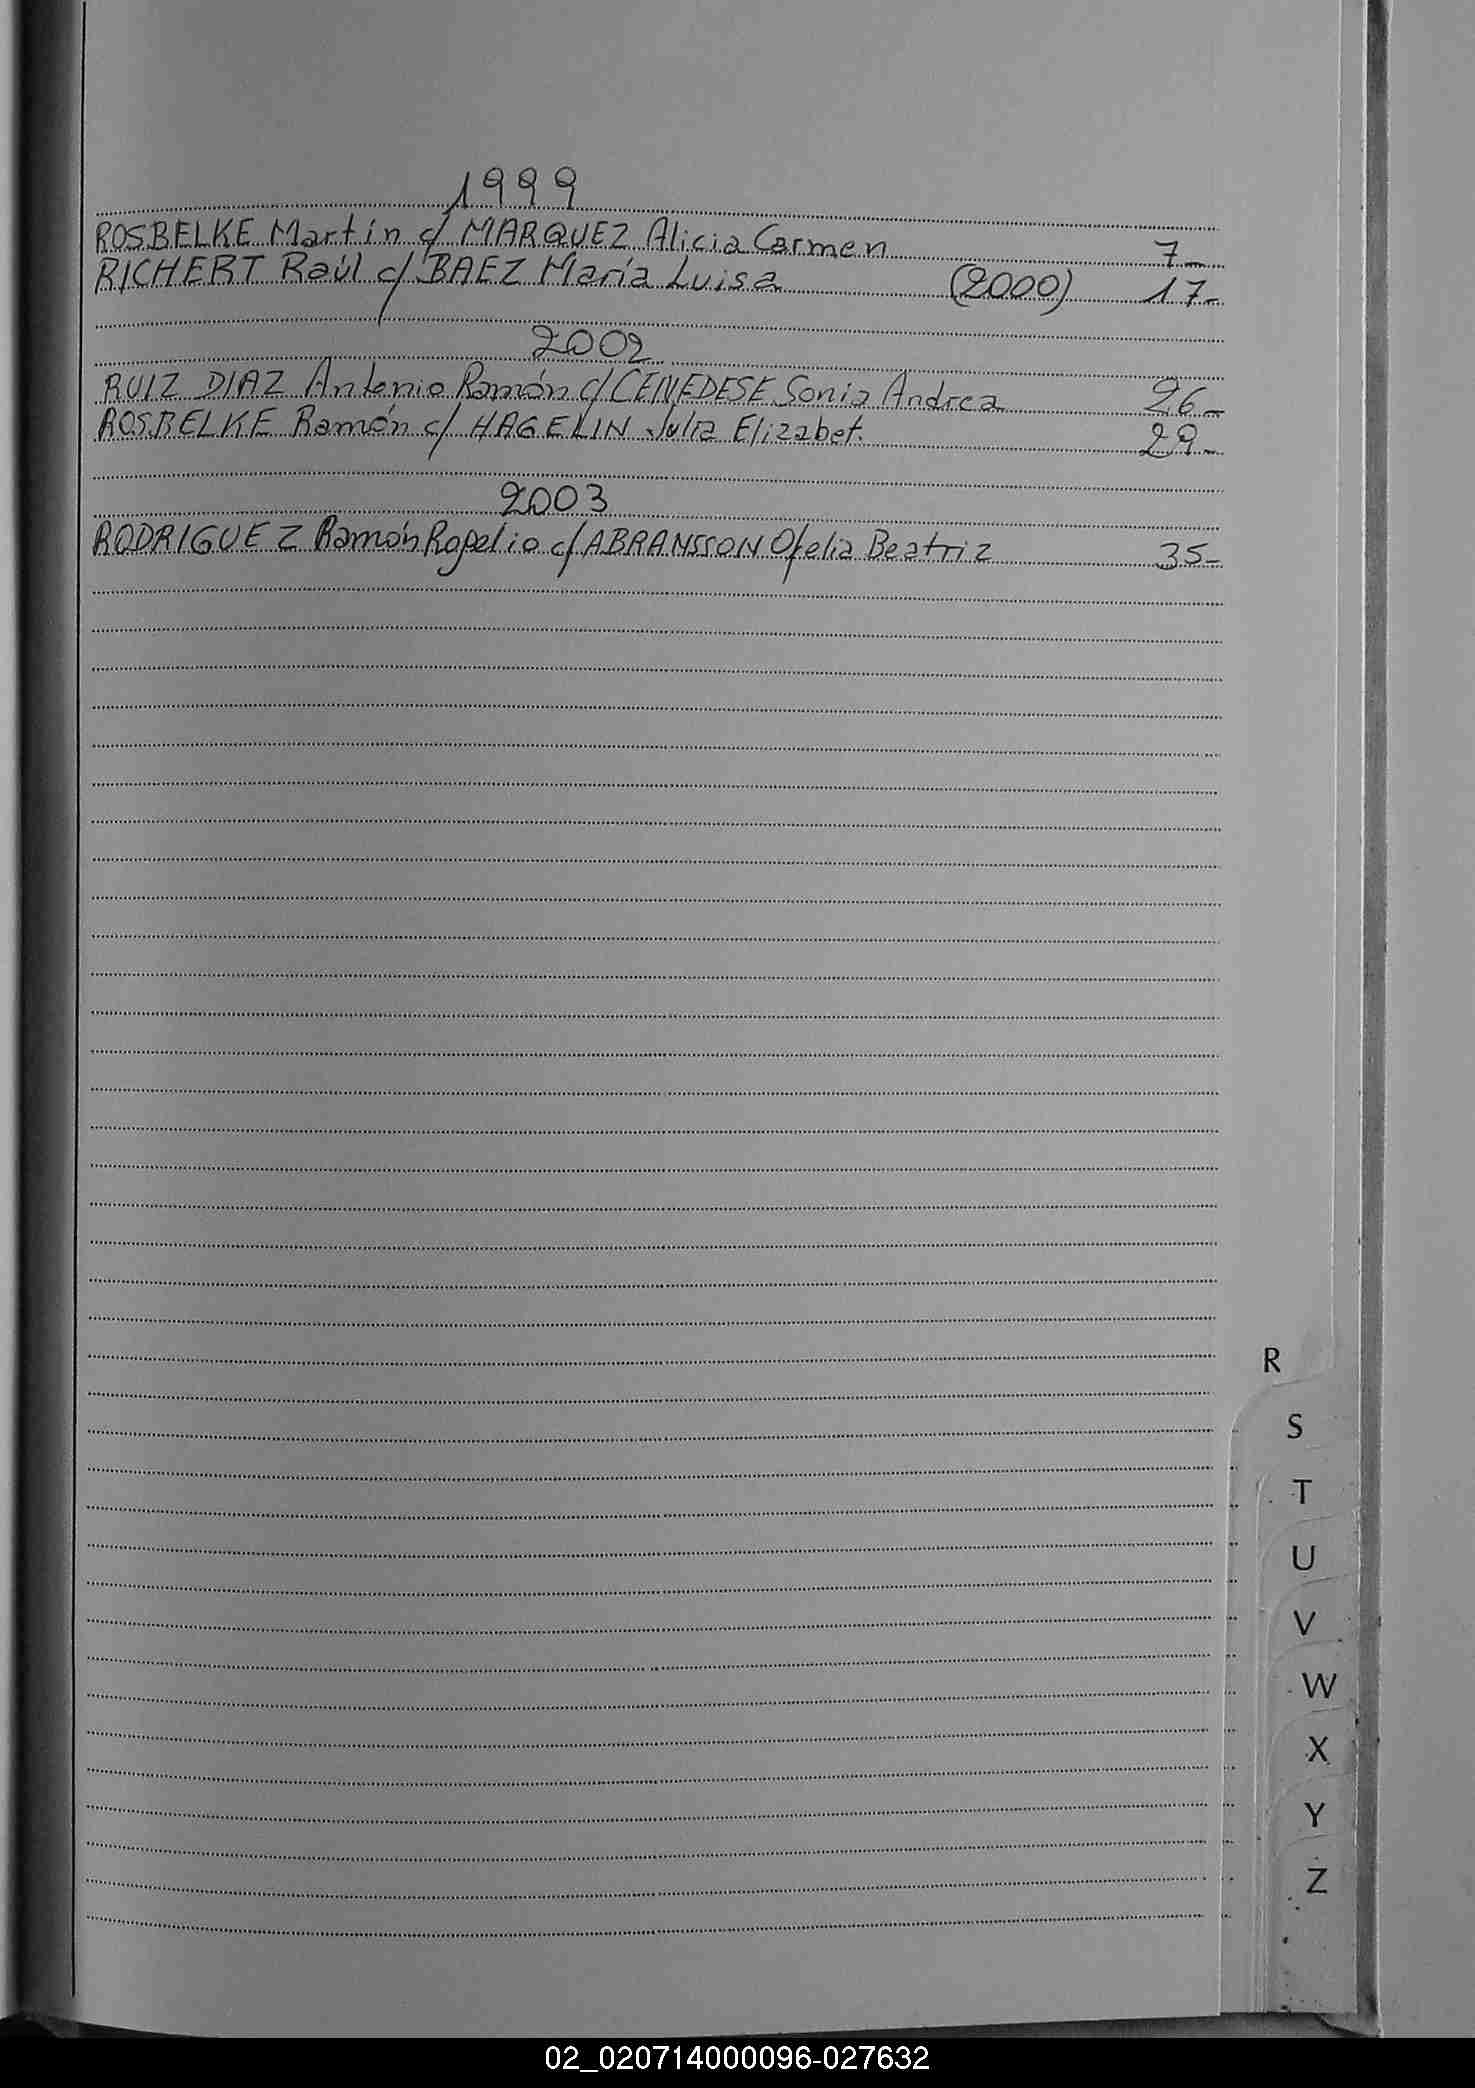 1999
ROSBELKE Martín c/ MARQUEZ Alicia Carmen 7-
RICHERT Raúl c/ BAEZ María Luisa (2000) 17-
2002
RUIZ DIAZ Antonio Ramón c/ CENEDESE Sonia Andrea 26-
ROSBELKE Ramón c/ HAGELIN Julia Elizabet. 29-
2003
RODRIGUEZ Ramón Rogelio c/ ABRANSSON Ofelia Beatriz 35-
R
S
T
U
V
W
X
Y
Z
02_020714000096-027632